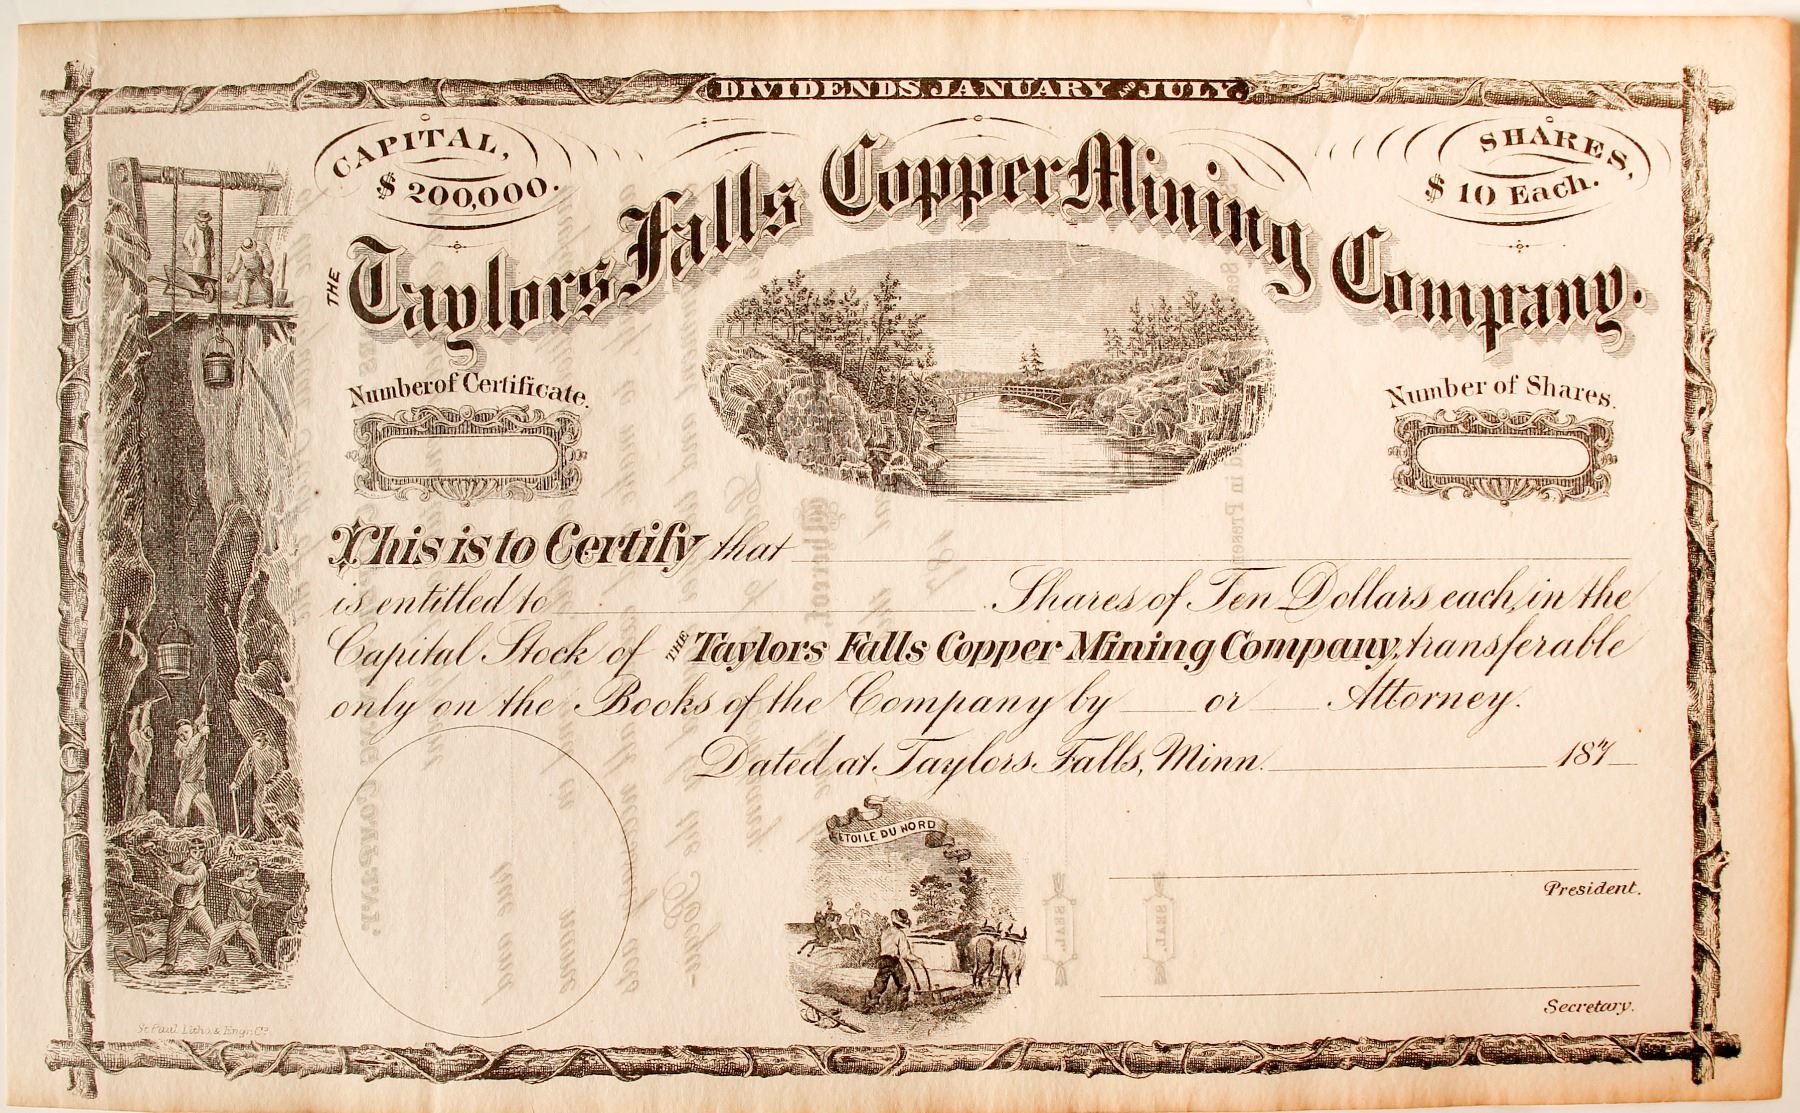 DIVIDENDS, JANUARY AND JULY.
CAPITAL,
$200,000.
SHARES,
$10 Each.
THE Taylors Falls Copper Mining Company.
Number of Certificate.
Number of Shares.
This is to Certify that
is entitled to Shares of Ten Dollars each, in the
Capital Stock of THE Taylors Falls Copper Mining Company, transferable
only on the Books of the Company by or Attorney.
Dated at Taylors Falls, Minn. 187
ETOILE DU NORD
President.
Secretary.
St Paul Litho. & Engr. Co.